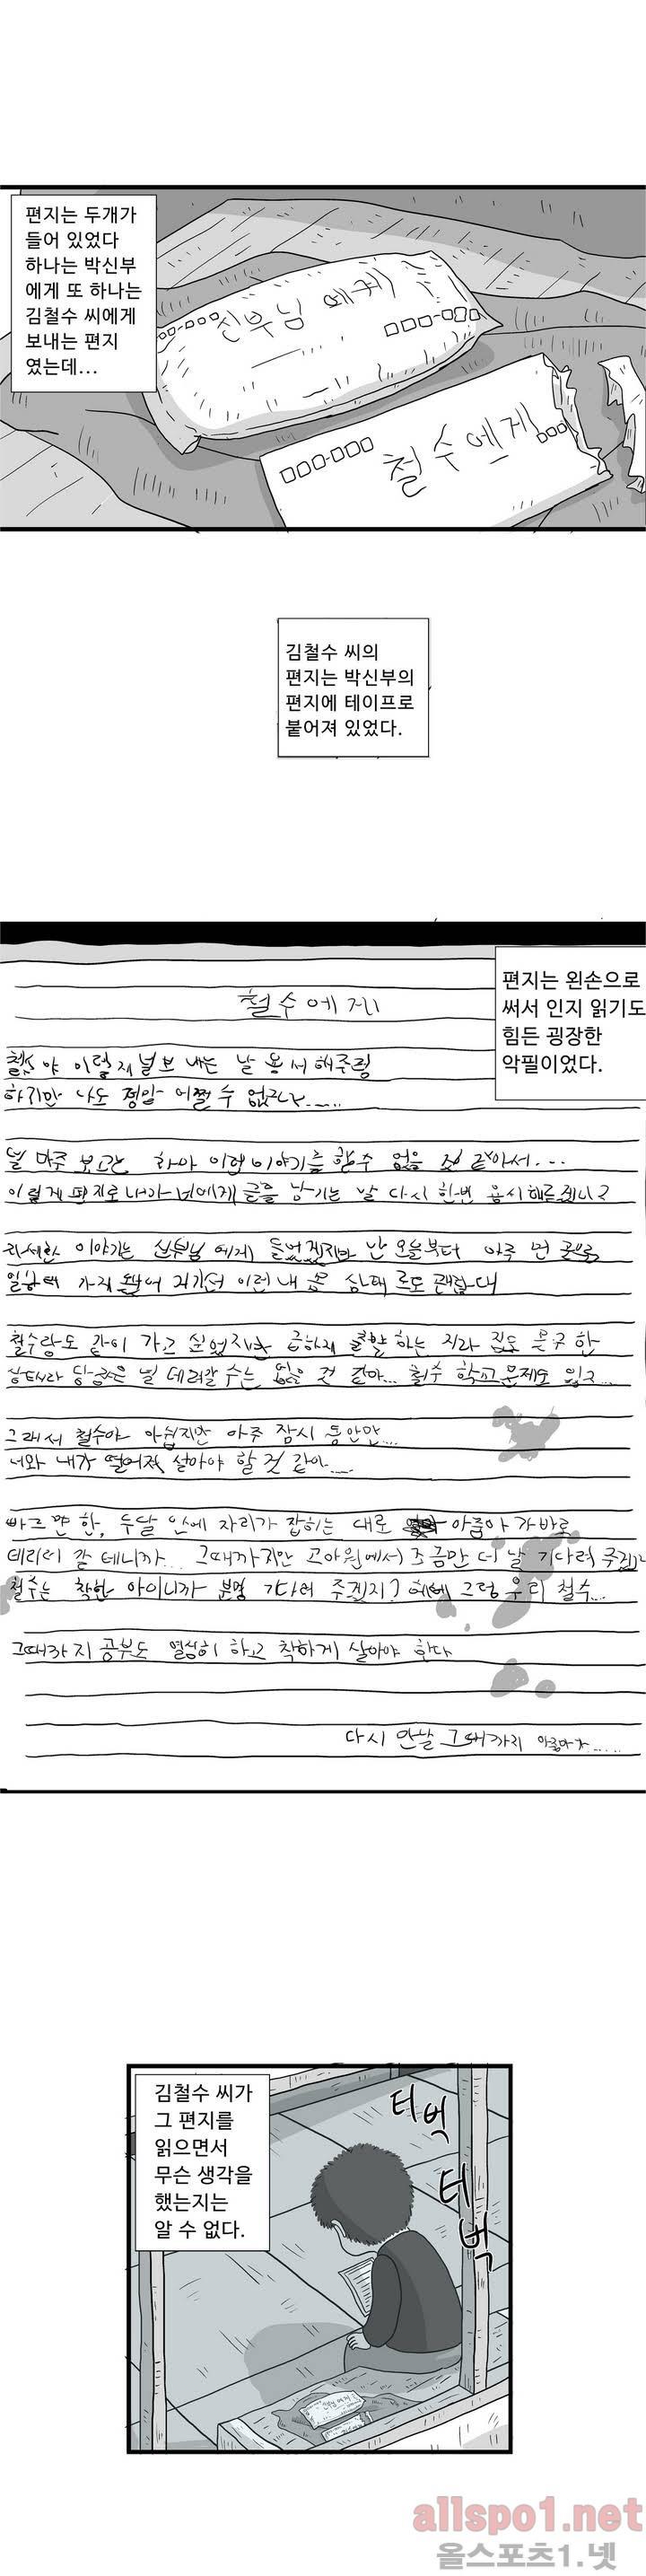 편지는 두개가
들어 있었다
하나는 박신부
에게 또 하나는
김철수 씨에게
보내는 편지
였는데...
신부님 에게
□□□-□□□
□□□-□□□
철수에게
□□□-□□□
□□□
김철수 씨의
편지는 박신부의
편지에 테이프로
붙어져 있었다.
편지는 왼손으로
써서 인지 읽기도
힘든 굉장한
악필이었다.
철수에게
철수야 이렇게 널 보내는 날 용서해주렴
하지만 나도 정말 어쩔 수 없구나......
널 마주 보고는 이런 이야기를 할수 없을 것 같아서...
이렇게 편지로 내가 너에게 글을 남기는 날 다시 한번 용서해주겠니?
자세한 이야기는 신부님 에게 들었겠지만 난 오늘부터 아주 먼 곳으로
일하러 가게 됐어 거기선 이런 내 몸 상태 로도 괜찮대
철수랑도 같이 가고 싶었지만 급하게 출발 하는 지라 집도 못구한
상태라 당장은 널 데려갈 수는 없을 것 같아... 철수 학교 문제도 있고...
그래서 철수야 아쉽지만 아주 잠시 동안만...
너와 내가 떨어져 살아야 할 것 같아....
빠르면 한, 두달 안에 자리가 잡히는 대로 아줌마가 바로
데리러 갈 테니까... 그때까지만 고아원에서 조금만 더 날 기다려 주겠니
철수는 착한 아이니까 분명 기다려 주겠지? 그럼 우리 철수...
그때까지 공부도 열심히 하고 착하게 살아야 한다
다시 만날 그때까지 아줌마가.....
김철수 씨가
그 편지를
읽으면서
무슨 생각을
했는지는
알 수 없다.
터벅
터벅
allspo1.net
올스포츠1.넷